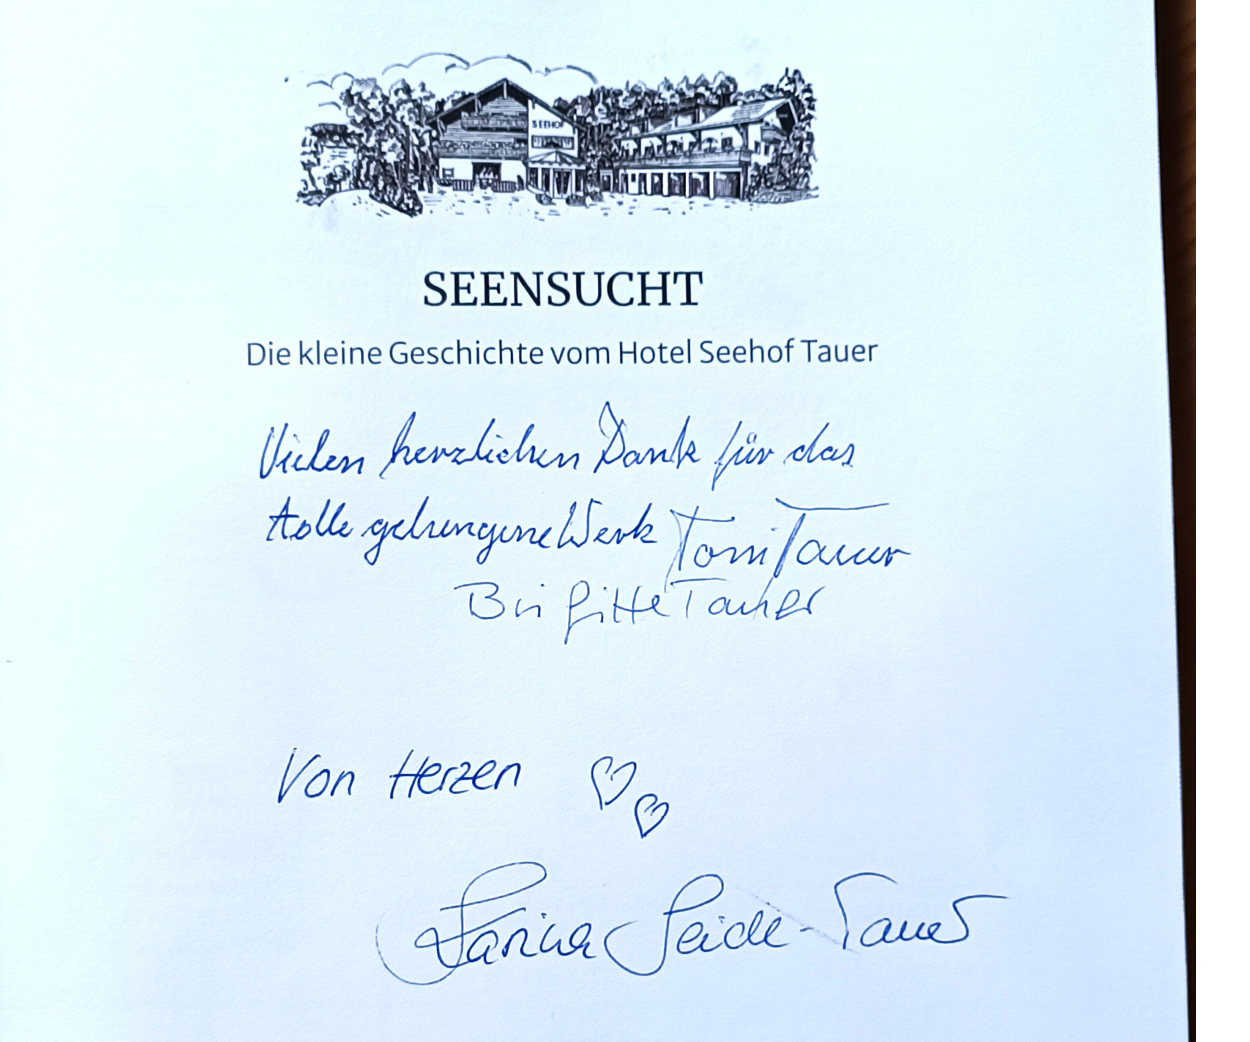 SEEHOF
SEENSUCHT
Die kleine Geschichte vom Hotel Seehof Tauer
Vielen herzlichen Dank für das
tolle gelungene Werk Toni Tauer
Birgitte Tauer
Von Herzen
Seidl-Tauer